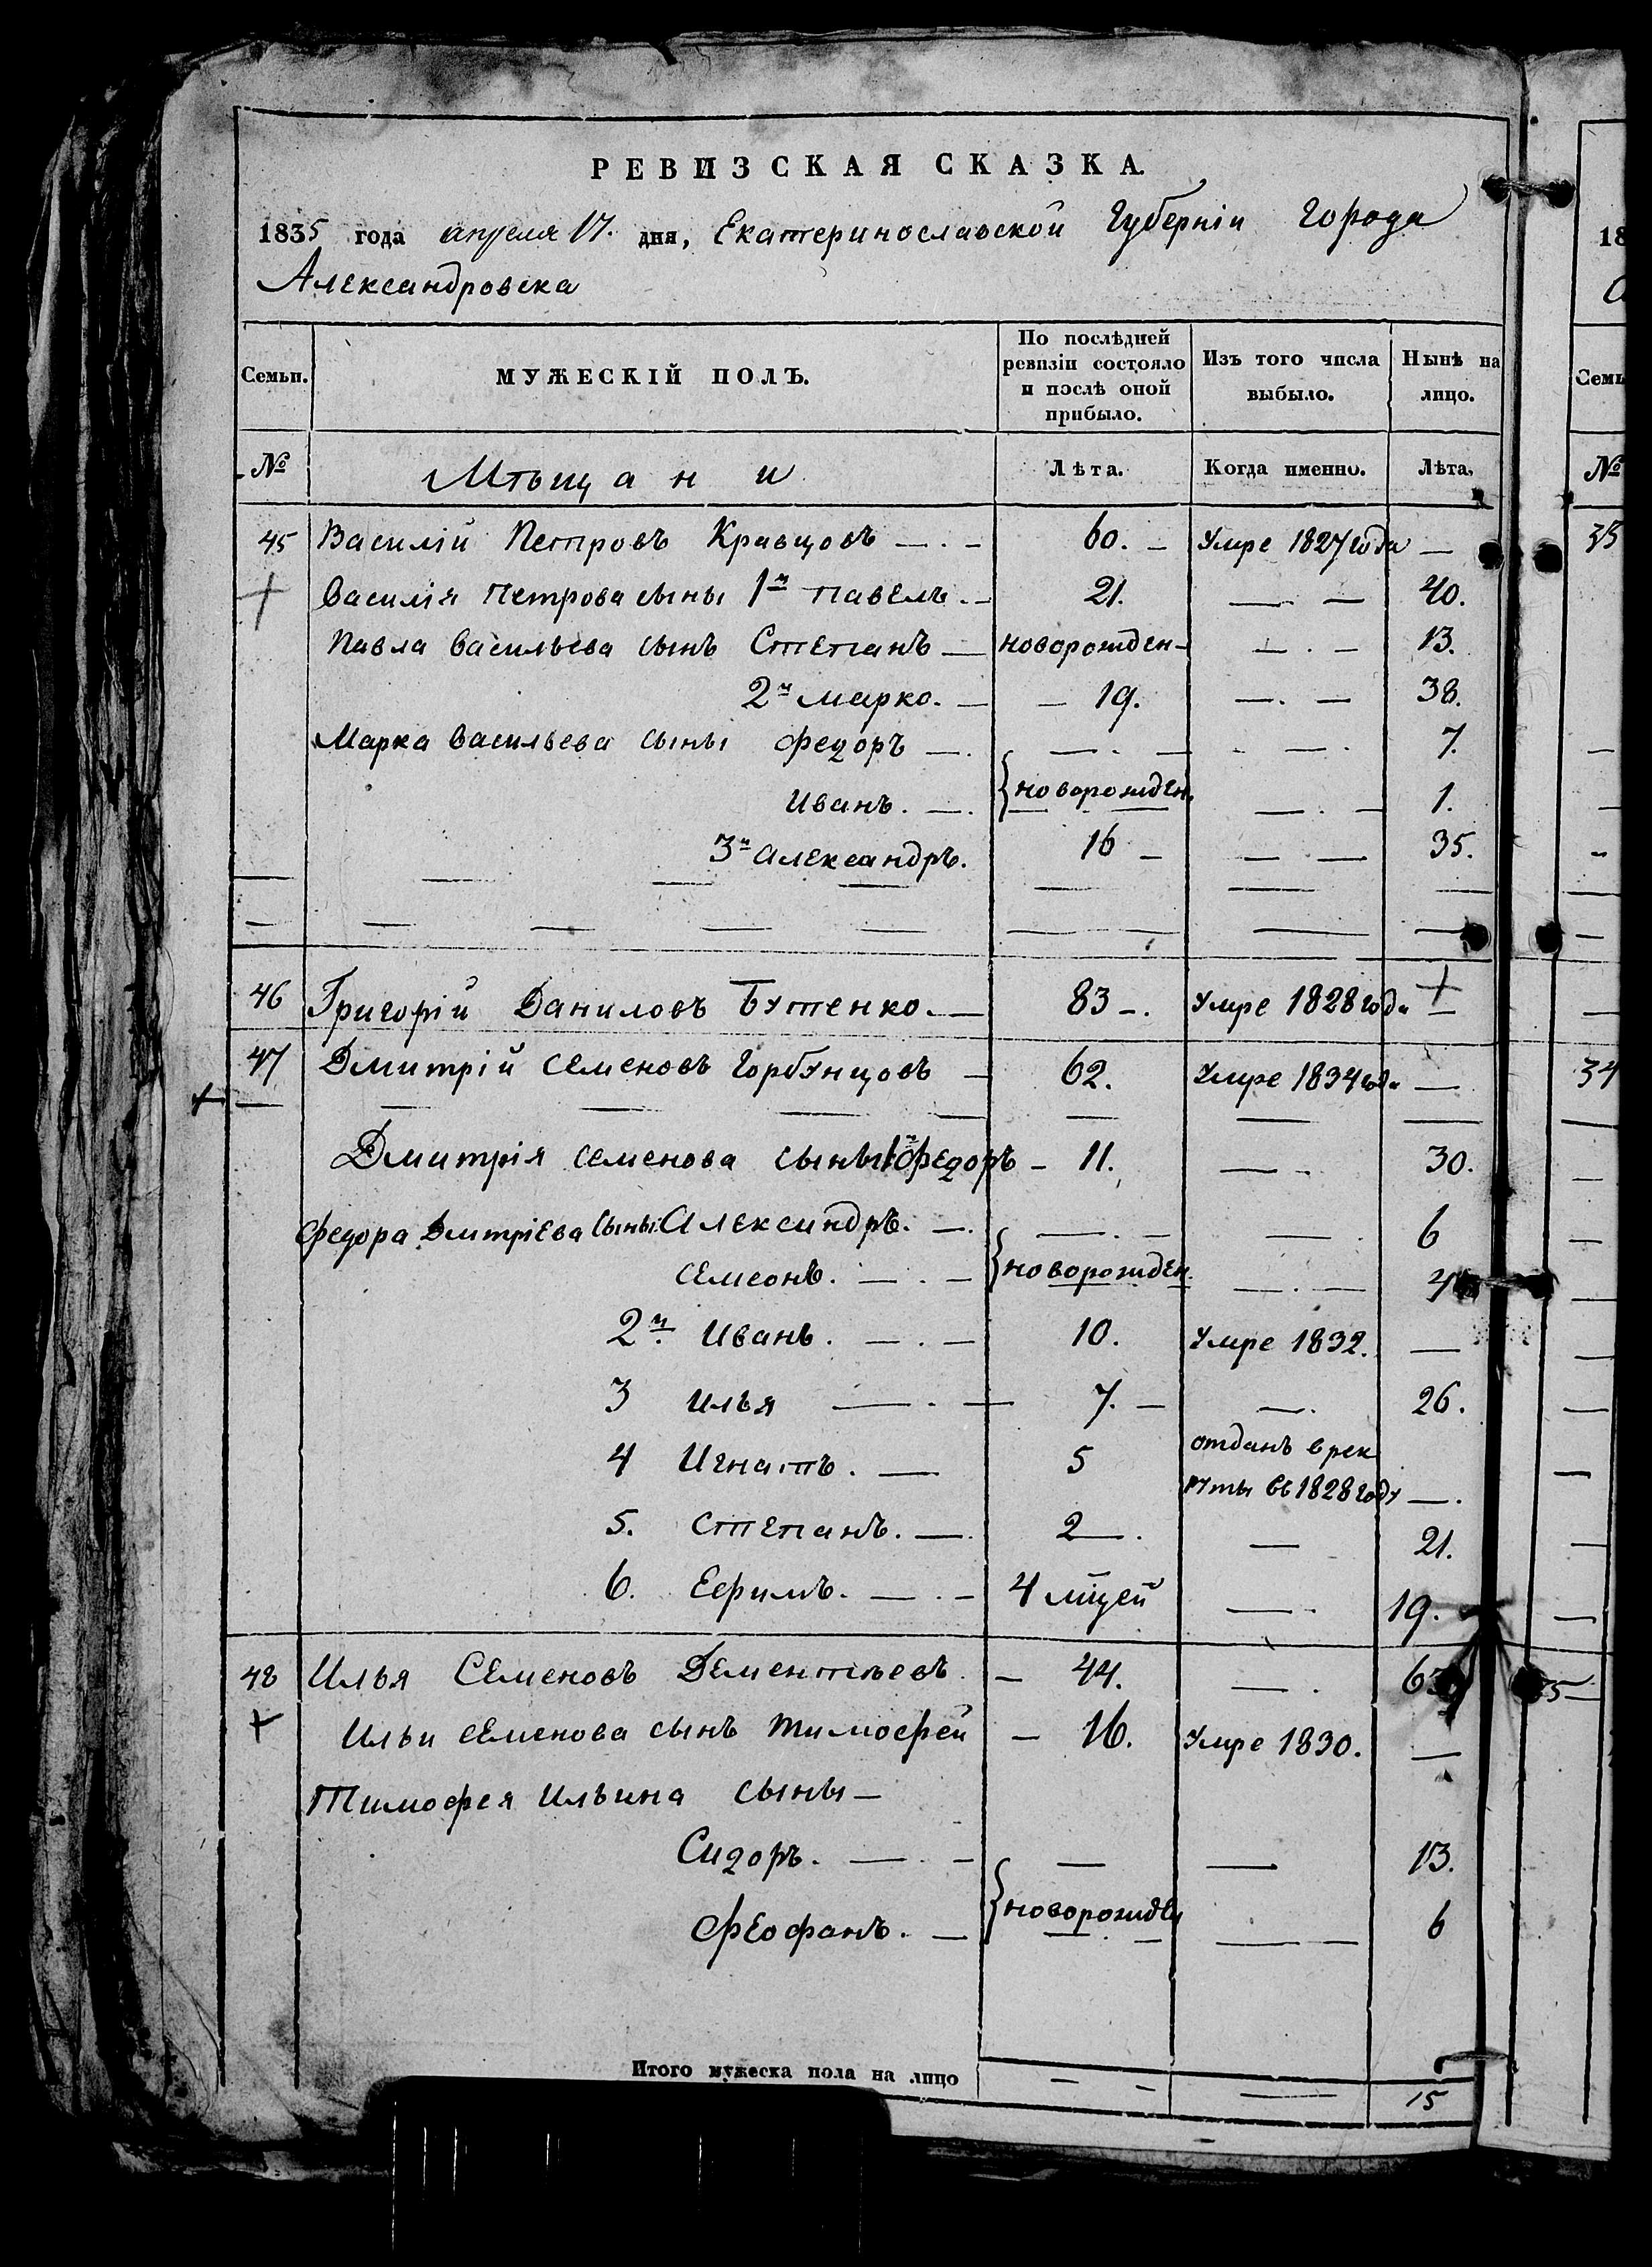 РЕВИЗСКАЯ СКАЗКА.
1835 года апреля 17. дня, Екатеринославской Губерніи Города
Александровска
Семьи. МУЖЕСКІЙ ПОЛЪ. По послѣдней ревизіи состояло и послѣ оной прибыло. Изъ того числа выбыло. Нынѣ на лицо.
№ Мѣщани Лѣта. Когда именно. Лѣта.
45 Василій Петровъ Кравцовъ 60. Умре 1827 года
Василія Петрова сыны 1й Павелъ 21. 40.
Павла Васильева сынъ Степанъ новорожден 13.
2й Марко. 19. 38.
Марка Васильева сыны Федоръ 7.
Иванъ. новорожден. 1.
3й Александръ. 16 35.
46 Григорій Даниловъ Бутенко. 83 Умре 1828 года
47 Дмитрій Семеновъ Горбунцовъ 62. Умре 1834 года
Дмитрія Семенова сыны 1й Федоръ 11. 30.
Федора Дмитріева сыны Александръ. 6
Семеонъ. новорожден. 4
2й Иванъ. 10. Умре 1832.
3 Илья 7. 26.
4 Игнатъ. 5 отданъ в рек
руты въ 1828 году
5. Степанъ. 2 21.
6. Ефимъ. 4 мцей 19.
48 Илья Семеновъ Дементьевъ 44. 63
Ильи Семенова сынъ Тимофей 16. Умре 1830.
Тимофея Ильина сыны
Сидоръ. 13.
Феофанъ. новорожден 6
Итого мужеска пола на лицо 15
18
Семь
№
33
34
5